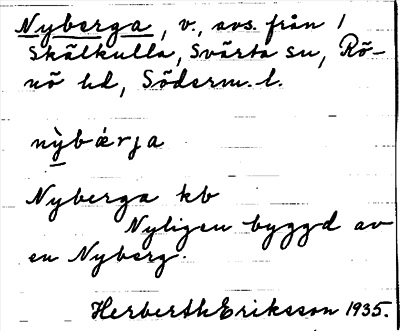 Nyberga, v., avs. från 1
Skälkulla, Svärta sn, Rö-
nö hd, Söderm. l.
nỳbǽrja
Nyberga kb
Nyligen byggd av
en Nyberg.
Herberth Eriksson 1935.